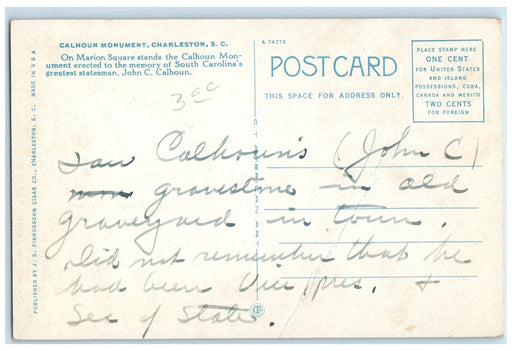 CALHOUN MONUMENT, CHARLESTON, S. C.
On Marion Square stands the Calhoun Mon-
ument erected to the memory of South Carolina's
greatest statesman, John C. Calhoun.
3.00
A-74778
POST CARD
THIS SPACE FOR ADDRESS ONLY.
PLACE STAMP HERE
ONE CENT
FOR UNITED STATES
AND ISLAND
POSSESSIONS, CUBA,
CANADA AND MEXICO
TWO CENTS
FOR FOREIGN
PUBLISHED BY J. S. PINKUSSOHN CIGAR CO., CHARLESTON, S. C. MADE IN U S A
Saw Calhoun's (John C)
gravestone in old
graveyard in town.
Did not remember that he
had been Vice pres. &
Sec of State.